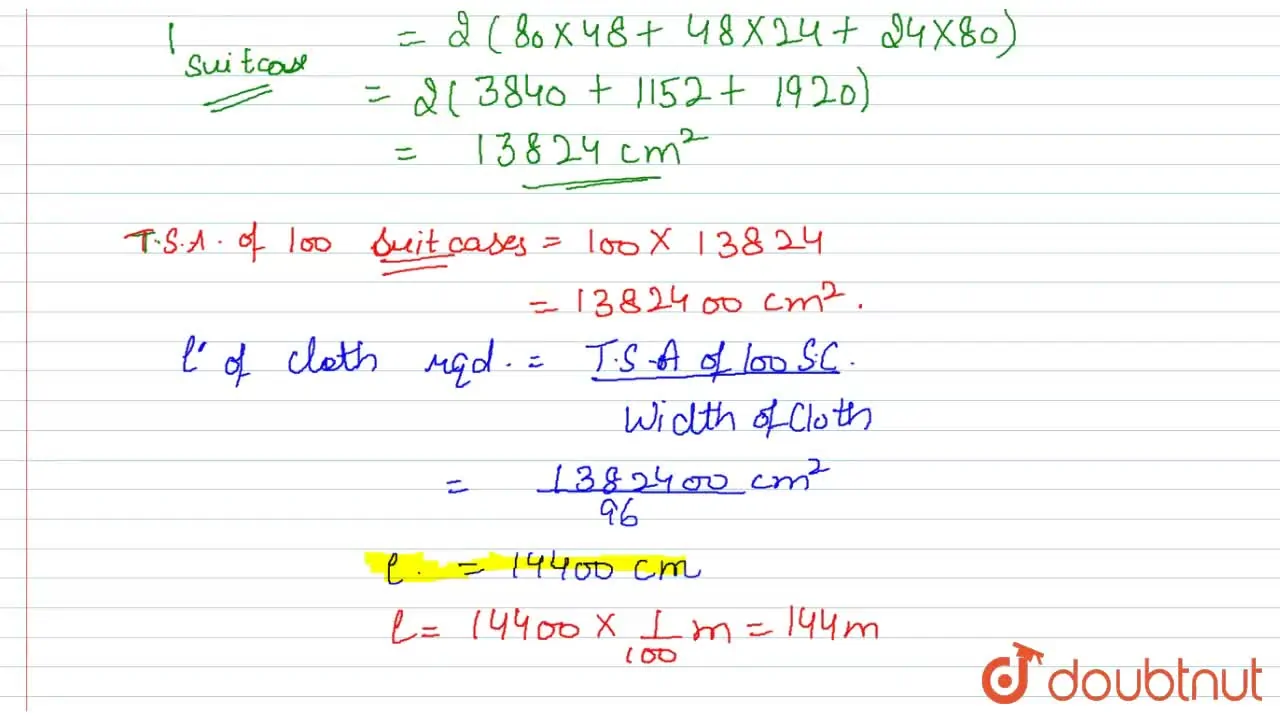 1 = 2(80×48+ 48×24+ 24×80)
suitcase
= 2(3840 + 1152+ 1920)
= 13824 cm²
T.S.A. of 100 suitcases = 100× 13824
= 1382400 cm².
l' of cloth rqd. = T.S.A of 100 S.C.
Width of Cloth
= 1382400 cm²
96
l. = 14400 cm
l= 14400 × 1 m = 144m
100
doubtnut